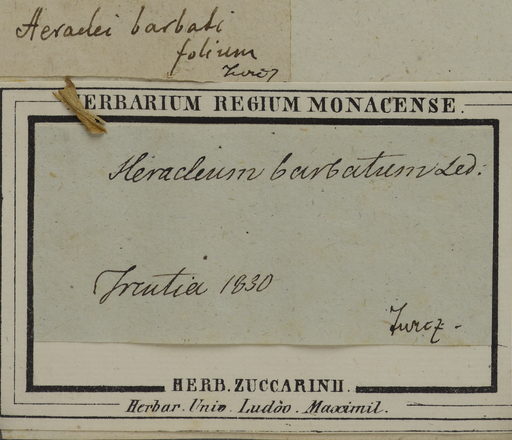 Heraclei barbati
folium
Turcz
HERBARIUM REGIUM MONACENSE.
Heracleum barbatum Led:
Ircutia 1830
Turcz.
HERB. ZUCCARINII.
Herbar. Univ. Ludov. Maximil.